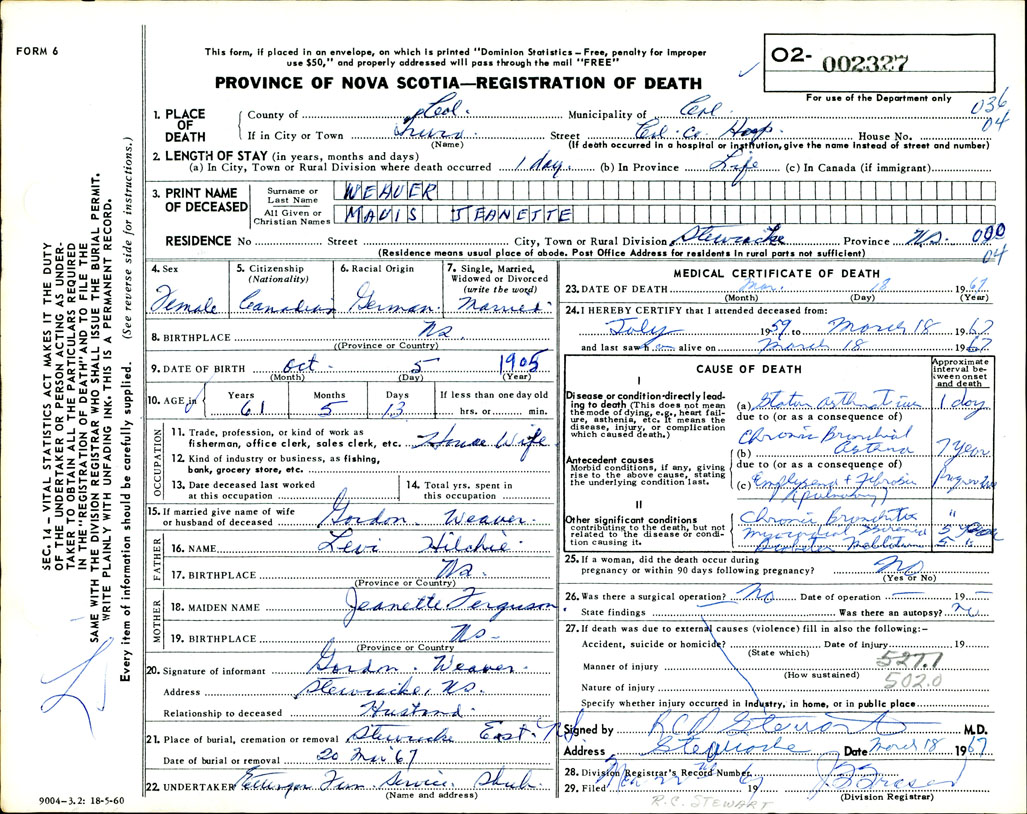 FORM 6
This form, if placed in an envelope, on which is printed "Dominion Statistics – Free, penalty for improper
use $50," and properly addressed will pass through the mail "FREE"
PROVINCE OF NOVA SCOTIA—REGISTRATION OF DEATH
02- 002327
For use of the Department only
036
04
1. PLACE OF DEATH
County of Col. Municipality of Col.
If in City or Town Truro. Street Col. Co. Hosp. House No.
(Name) (If death occurred in a hospital or institution, give the name instead of street and number)
2. LENGTH OF STAY (in years, months and days)
(a) In City, Town or Rural Division where death occurred 1 day. (b) In Province Life (c) In Canada (if immigrant)
3. PRINT NAME OF DECEASED
Surname or Last Name WEAVER
All Given or Christian Names MAVIS JEANETTE
RESIDENCE No Street City, Town or Rural Division Stewiacke Province Ns. 000
04
(Residence means usual place of abode. Post Office Address for residents in rural parts not sufficient)
4. Sex Female
5. Citizenship (Nationality) Canadian
6. Racial Origin German
7. Single, Married, Widowed or Divorced (write the word) Married
8. BIRTHPLACE Ns
((Province or Country)
9. DATE OF BIRTH Oct. 5 1905
(Month) (Day) (Year)
10. AGE Years 61 Months 5 Days 13 If less than one day old hrs. or min.
OCCUPATION
11. Trade, profession, or kind of work as
fisherman, office clerk, sales clerk, etc. House Wife
12. Kind of industry or business, as fishing,
bank, grocery store, etc.
13. Date deceased last worked
at this occupation
14. Total yrs. spent in
this occupation
15. If married give name of wife
or husband of deceased Gordon Weaver.
FATHER
16. NAME Levi Hilchie
17. BIRTHPLACE Ns.
(Province or Country)
MOTHER
18. MAIDEN NAME Jeanette Ferguson
19. BIRTHPLACE Ns
(Province or Country
20. Signature of informant Gordon Weaver.
Address Stewiacke, Ns.
Relationship to deceased Husband
21. Place of burial, cremation or removal Stewiacke East
Date of burial or removal 20 Mar 67
22. UNDERTAKER Ettinger Fun Service Shub.
(Name and address)
MEDICAL CERTIFICATE OF DEATH
23. DATE OF DEATH Mar. 18 1967
(Month) (Day) (Year)
24. I HEREBY CERTIFY that I attended deceased from:
July 1959 to March 18 1967
and last saw h er alive on March 18 1967
CAUSE OF DEATH
Approximate interval between onset and death
I
Disease or condition directly leading to death (This does not mean the mode of dying, e.g., heart failure, asthenia, etc. It means the disease, injury, or complication which caused death.)
(a) Status Asthmaticus 1 day
due to (or as a consequence of)
Chronic Bronchial
(b) Asthma 7 Years
Antecedent causes
Morbid conditions, if any, giving rise to the above cause, stating the underlying condition last.
due to (or as a consequence of)
(c) Emphysema + Fibrosis Progressive
(pulmonary)
II
Other significant conditions
contributing to the death, but not related to the disease or condition causing it.
Chronic Bronchitis "
Myocardial 5 Years
Mellitus 5 "
25. If a woman, did the death occur during
pregnancy or within 90 days following pregnancy? No
(Yes or No)
26. Was there a surgical operation? No Date of operation — 19 —
State findings Was there an autopsy? No
27. If death was due to external causes (violence) fill in also the following:–
Accident, suicide or homicide? Date of injury 19
(State which)
527.1
Manner of injury
(How sustained)
502.0
Nature of injury
Specify whether injury occurred in Industry, in home, or in public place
Signed by R C D Stewart M.D.
Address Stewiacke Date March 18 1967
28. Division Registrar's Record Number
29. Filed 22 19 67 Fraser
(Division Registrar)
R.C. STEWART
SEC. 14 – VITAL STATISTICS ACT MAKES IT THE DUTY
OF THE UNDERTAKER OR PERSON ACTING AS UNDER-
TAKER TO OBTAIN ALL THE PARTICULARS REQUIRED
IN THE "REGISTRATION OF DEATH" AND TO FILE THE
SAME WITH THE DIVISION REGISTRAR WHO SHALL ISSUE THE BURIAL PERMIT.
WRITE PLAINLY WITH UNFADING INK. THIS IS A PERMANENT RECORD.
Every item of information should be carefully supplied. (See reverse side for instructions.)
9004–3.2: 18-5-60